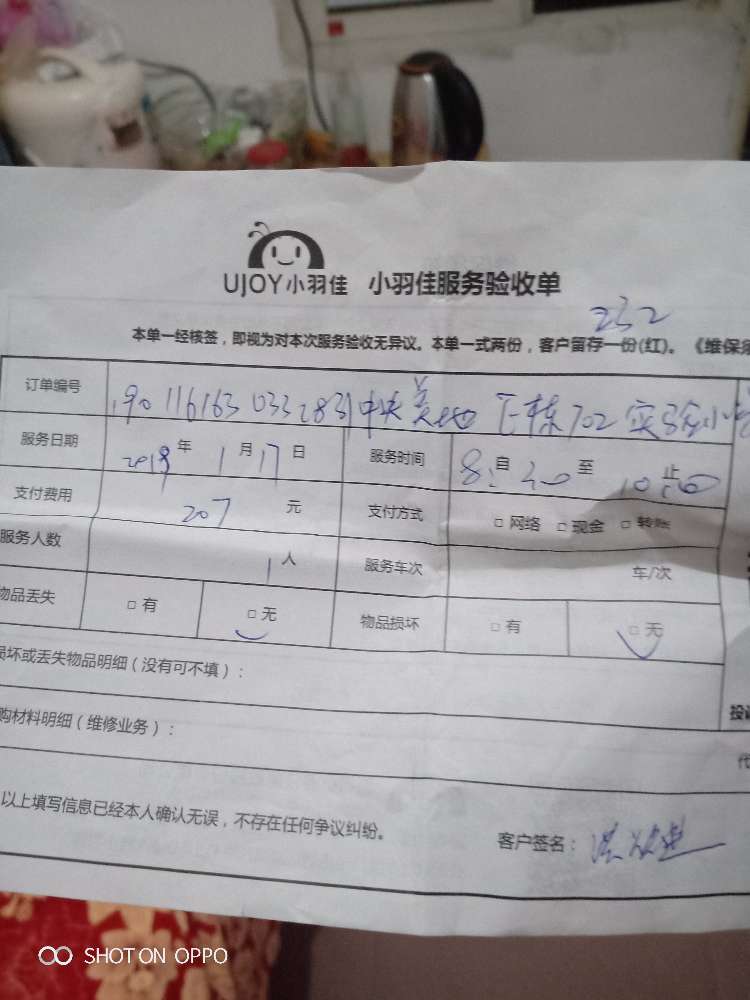 UJOY小羽佳 小羽佳服务验收单
232
本单一经核签，即视为对本次服务验收无异议。本单一式两份，客户留存一份(红)。《维保
订单编号 190116163033283 中央美地 E栋702 实验小学
服务日期 2019年1月17日 服务时间 自 至 止
支付费用 207元 支付方式 □网络 □现金 □转账
服务人数 1人 服务车次 车/次
物品丢失 □有 □无 物品损坏 □有 □无
损坏或丢失物品明细（没有可不填）：
购材料明细（维修业务）：
投诉
代
以上填写信息已经本人确认无误，不存在任何争议纠纷。
客户签名：
SHOT ON OPPO